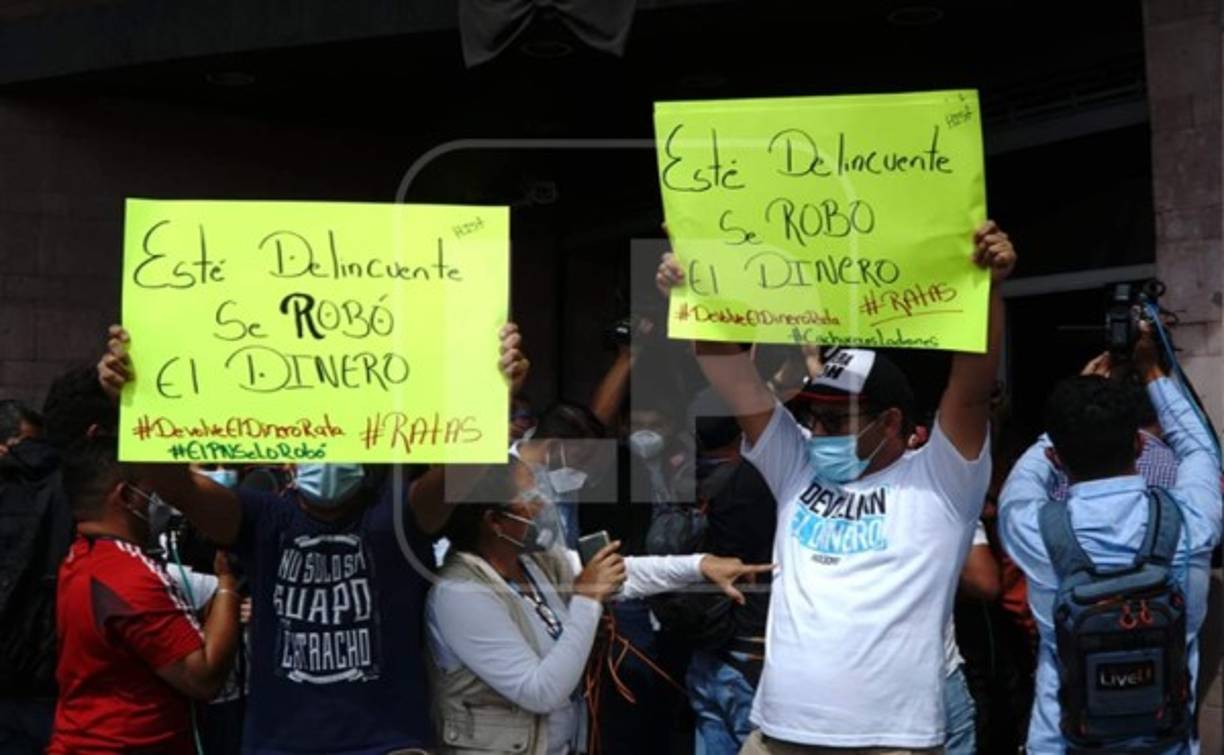 Esté Delincuente
Se ROBÓ
El DINERO
#DevolveElDineroRata #RAtAS
#ElPNSeLoRobó
Esté Delincuente
Se ROBO
El DINERO
#DevolveElDineroRata #RAtAS
#CachurecosLadones
NO SOLO SOY
GUAPO
CATRACHO
DEVUELVAN
EL DINERO
LiveU